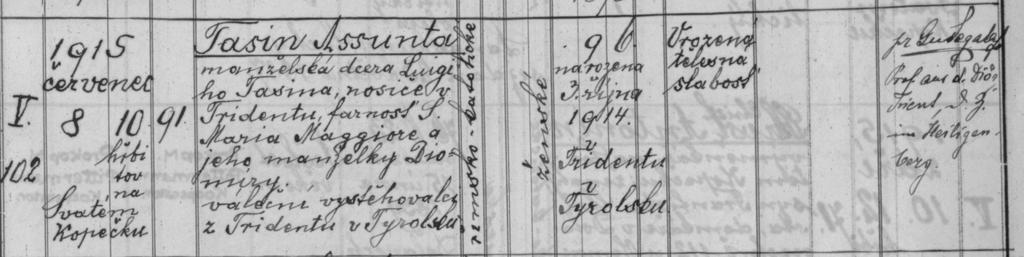 1915
červenec
V.
8 10. 91.
102
hřbi
tov
na
Svatém
Kopečku
Tasin Assunta
manželská dcera Luigi
ho Tasina, nosiče v
Tridentu, farnosť S.
Maria Maggiore a
jeho manželky Dio-
nizy.
váleční vystěhovalci
z Tridentu v Tyrolsku
římsko-katolické
ženské
9 6.
narozena
7. října
1914.
v
Tridentu
v
Tyrolsku
Vrozená
tělesná
slabosť
Prof. aus d. Diöz.
Trient, d. Z.
im Heiligen-
berg.